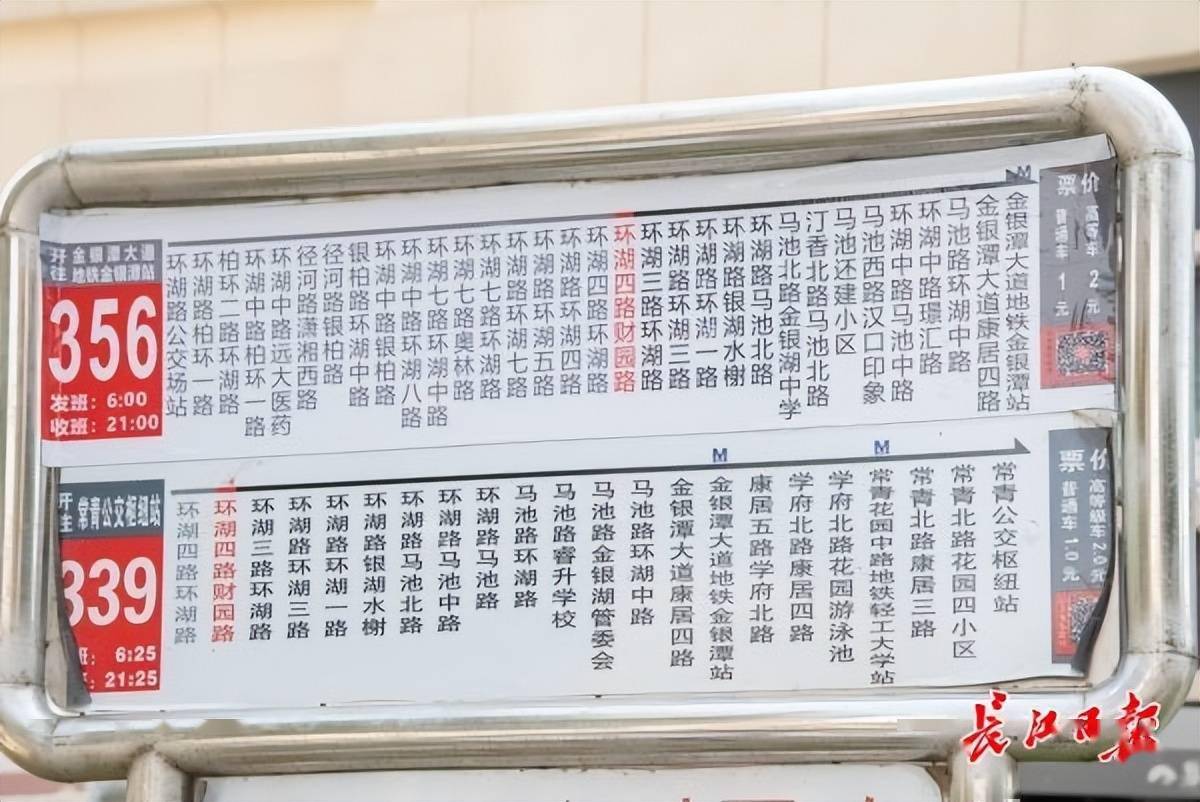 开往
金银潭大道
地铁金银潭站
356
发班：6:00
收班：21:00
环湖路公交场站
环湖路柏环一路
柏环二路环湖路
环湖中路柏环一路
环湖中路远大医药
径河路潇湘西路
径河路银柏路
银柏路环湖中路
环湖中路银柏路
环湖中路环湖八路
环湖七路环湖中路
环湖七路奥林路
环湖七路环湖路
环湖路环湖七路
环湖路环湖五路
环湖路环湖四路
环湖四路环湖路
环湖四路财园路
环湖三路环湖路
环湖路环湖三路
环湖路环湖一路
环湖路银湖水榭
环湖路马池北路
马池北路金银湖中学
汀香北路马池北路
马池还建小区
马池西路汉口印象
环湖中路马池中路
环湖中路璟汇路
马池路环湖中路
金银潭大道康居四路
金银潭大道地铁金银潭站
M
票价
普通车 1 元
2 元
开
常青公交枢纽站
339
班：6:25
21:25
环湖四路环湖路
环湖四路财园路
环湖三路环湖路
环湖路环湖三路
环湖路环湖一路
环湖路银湖水榭
环湖路马池北路
环湖路马池中路
环湖路马池路
马池路环湖路
马池路睿升学校
马池路金银湖管委会
马池路环湖中路
金银潭大道康居四路
M
金银潭大道地铁金银潭站
康居五路学府北路
学府北路康居四路
学府北路花园游泳池
M
常青花园中路地铁轻工大学站
常青北路康居三路
常青北路花园四小区
常青公交枢纽站
票价
普通车 1.0 元
高等级车 2.0 元
长江日报